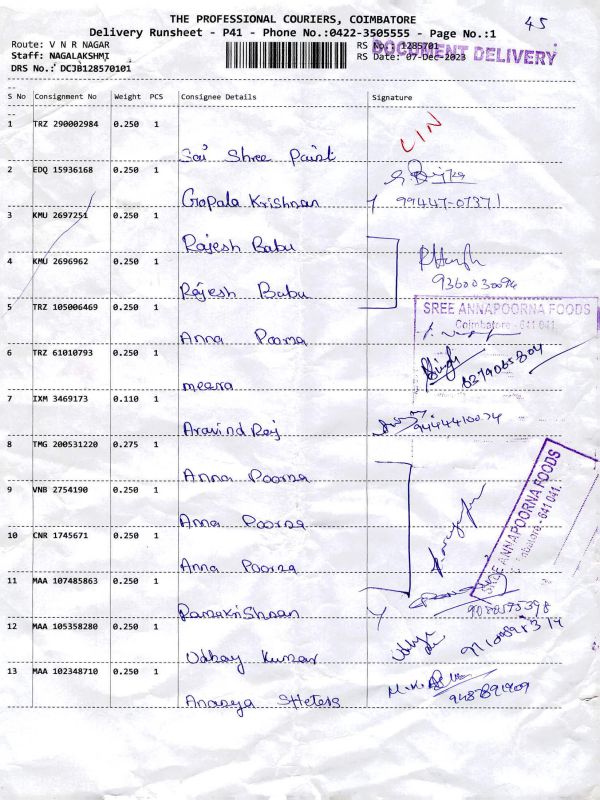 THE PROFESSIONAL COURIERS, COIMBATORE
45
Delivery Runsheet - P41 - Phone No.:0422-3505555 - Page No.:1
Route: V N R NAGAR
RS No.: 1285701
DOCUMENT DELIVERY
Staff: NAGALAKSHMI
RS Date: 07-Dec-2023
DRS No.: DCJB128570101
S No Consignment No Weight PCS Consignee Details Signature
1 TRZ 290002984 0.250 1 Sai Shree Paist LIN
2 EDQ 15936168 0.250 1 Gopala Krishnan 99447-07371
3 KMU 2697251 0.250 1 Rajesh Babu
4 KMU 2696962 0.250 1 Rajesh Babu 9360030094
5 TRZ 105006469 0.250 1 Anna Poorna
SREE ANNAPOORNA FOODS
Coimbatore - 641 041.
6 TRZ 61010793 0.250 1 meera 8279065804
7 IXM 3469173 0.110 1 Aravind Raj 9444410074
8 TMG 200531220 0.275 1 Anna Poorna
9 VNB 2754190 0.250 1 Anna Poorna
10 CNR 1745671 0.250 1 Anna Poorna
SREE ANNAPOORNA FOODS
Coimbatore - 641 041.
11 MAA 107485863 0.250 1 Ramakrishnan
12 MAA 105358280 0.250 1 Udhay Kumar
13 MAA 102348710 0.250 1 Anasya Sheters 9487891909